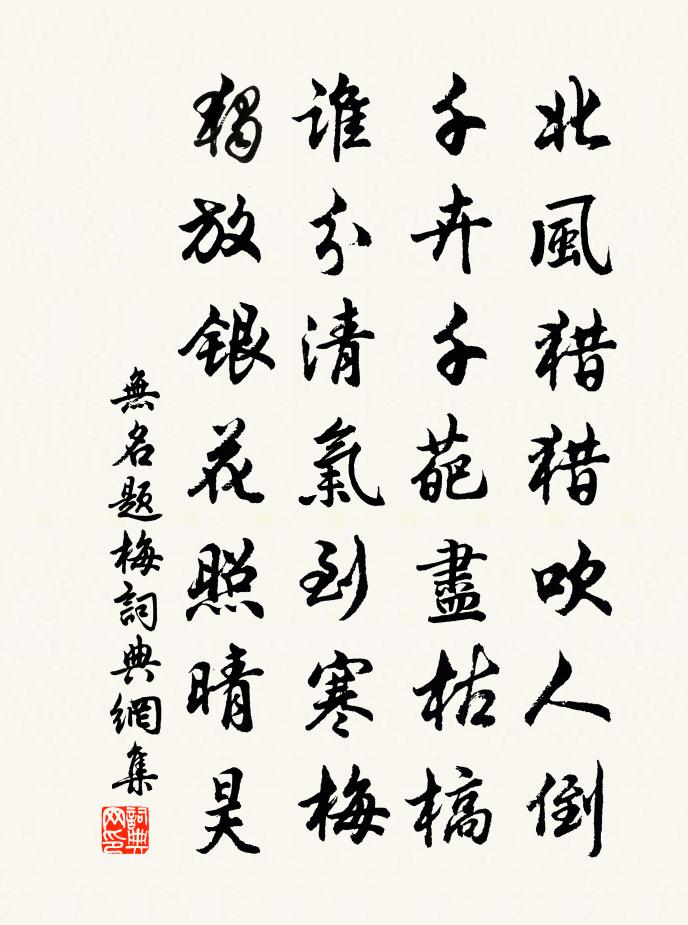 北風猎猎吹人倒
千卉千葩盡枯槁
誰分清氣到寒梅
獨放銀花照晴昊
無名題梅詞典網集
詞典网印